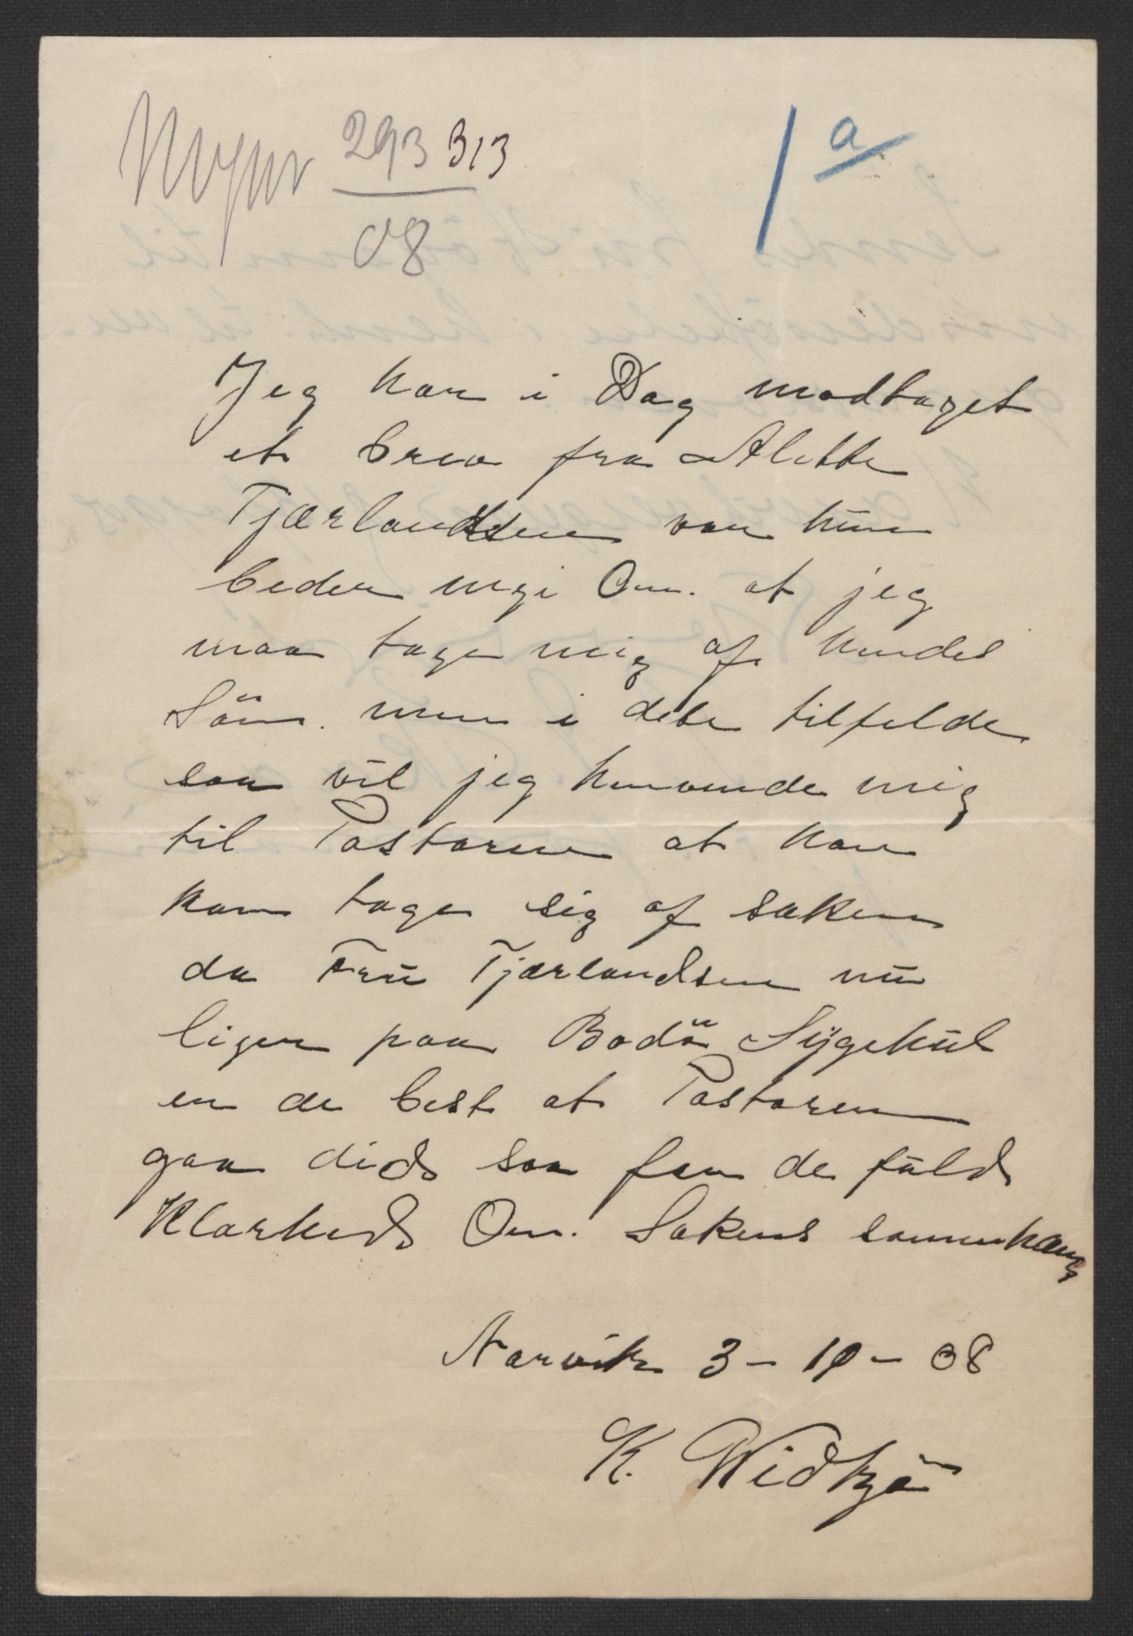 293 313
08
1 a
Jeg har i Dag modtaget
et brev fra Alette
Tjærlandsen var hun
beder mgi Om. at jeg
maa tage mig af hendes
Sön. men i dete tilfelde
saa vil jeg henvende mig
til Pastoren at han
kan tage sig af saken
da Fru Tjærlandsen nu
liger paa Bodö Sygehus
er de best at Pastoren
gaar dids saa faar de fuld
Klarheds Om. Sakens sammenhæng
Narvik 3 - 10 - 08
K. Widtjö